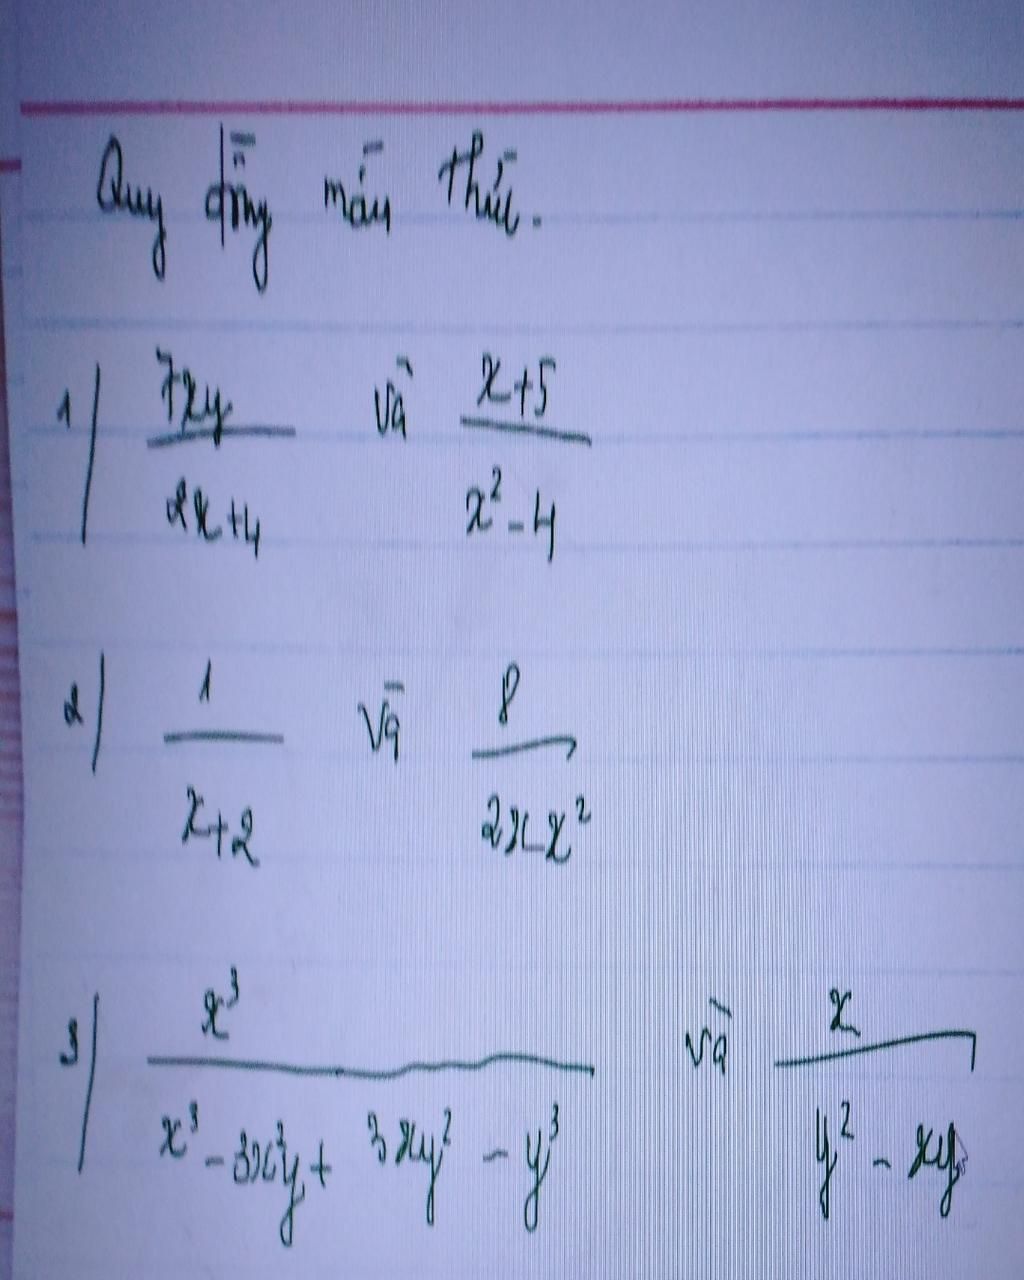 Quy đồng mẫu thức.
1/ 7xy/(2x+4) và (x+5)/(x²-4)
2/ 1/(x+2) và 8/(2x-x²)
3/ x³/(x³-3x²y+3xy²-y³) và x/(y²-xy)